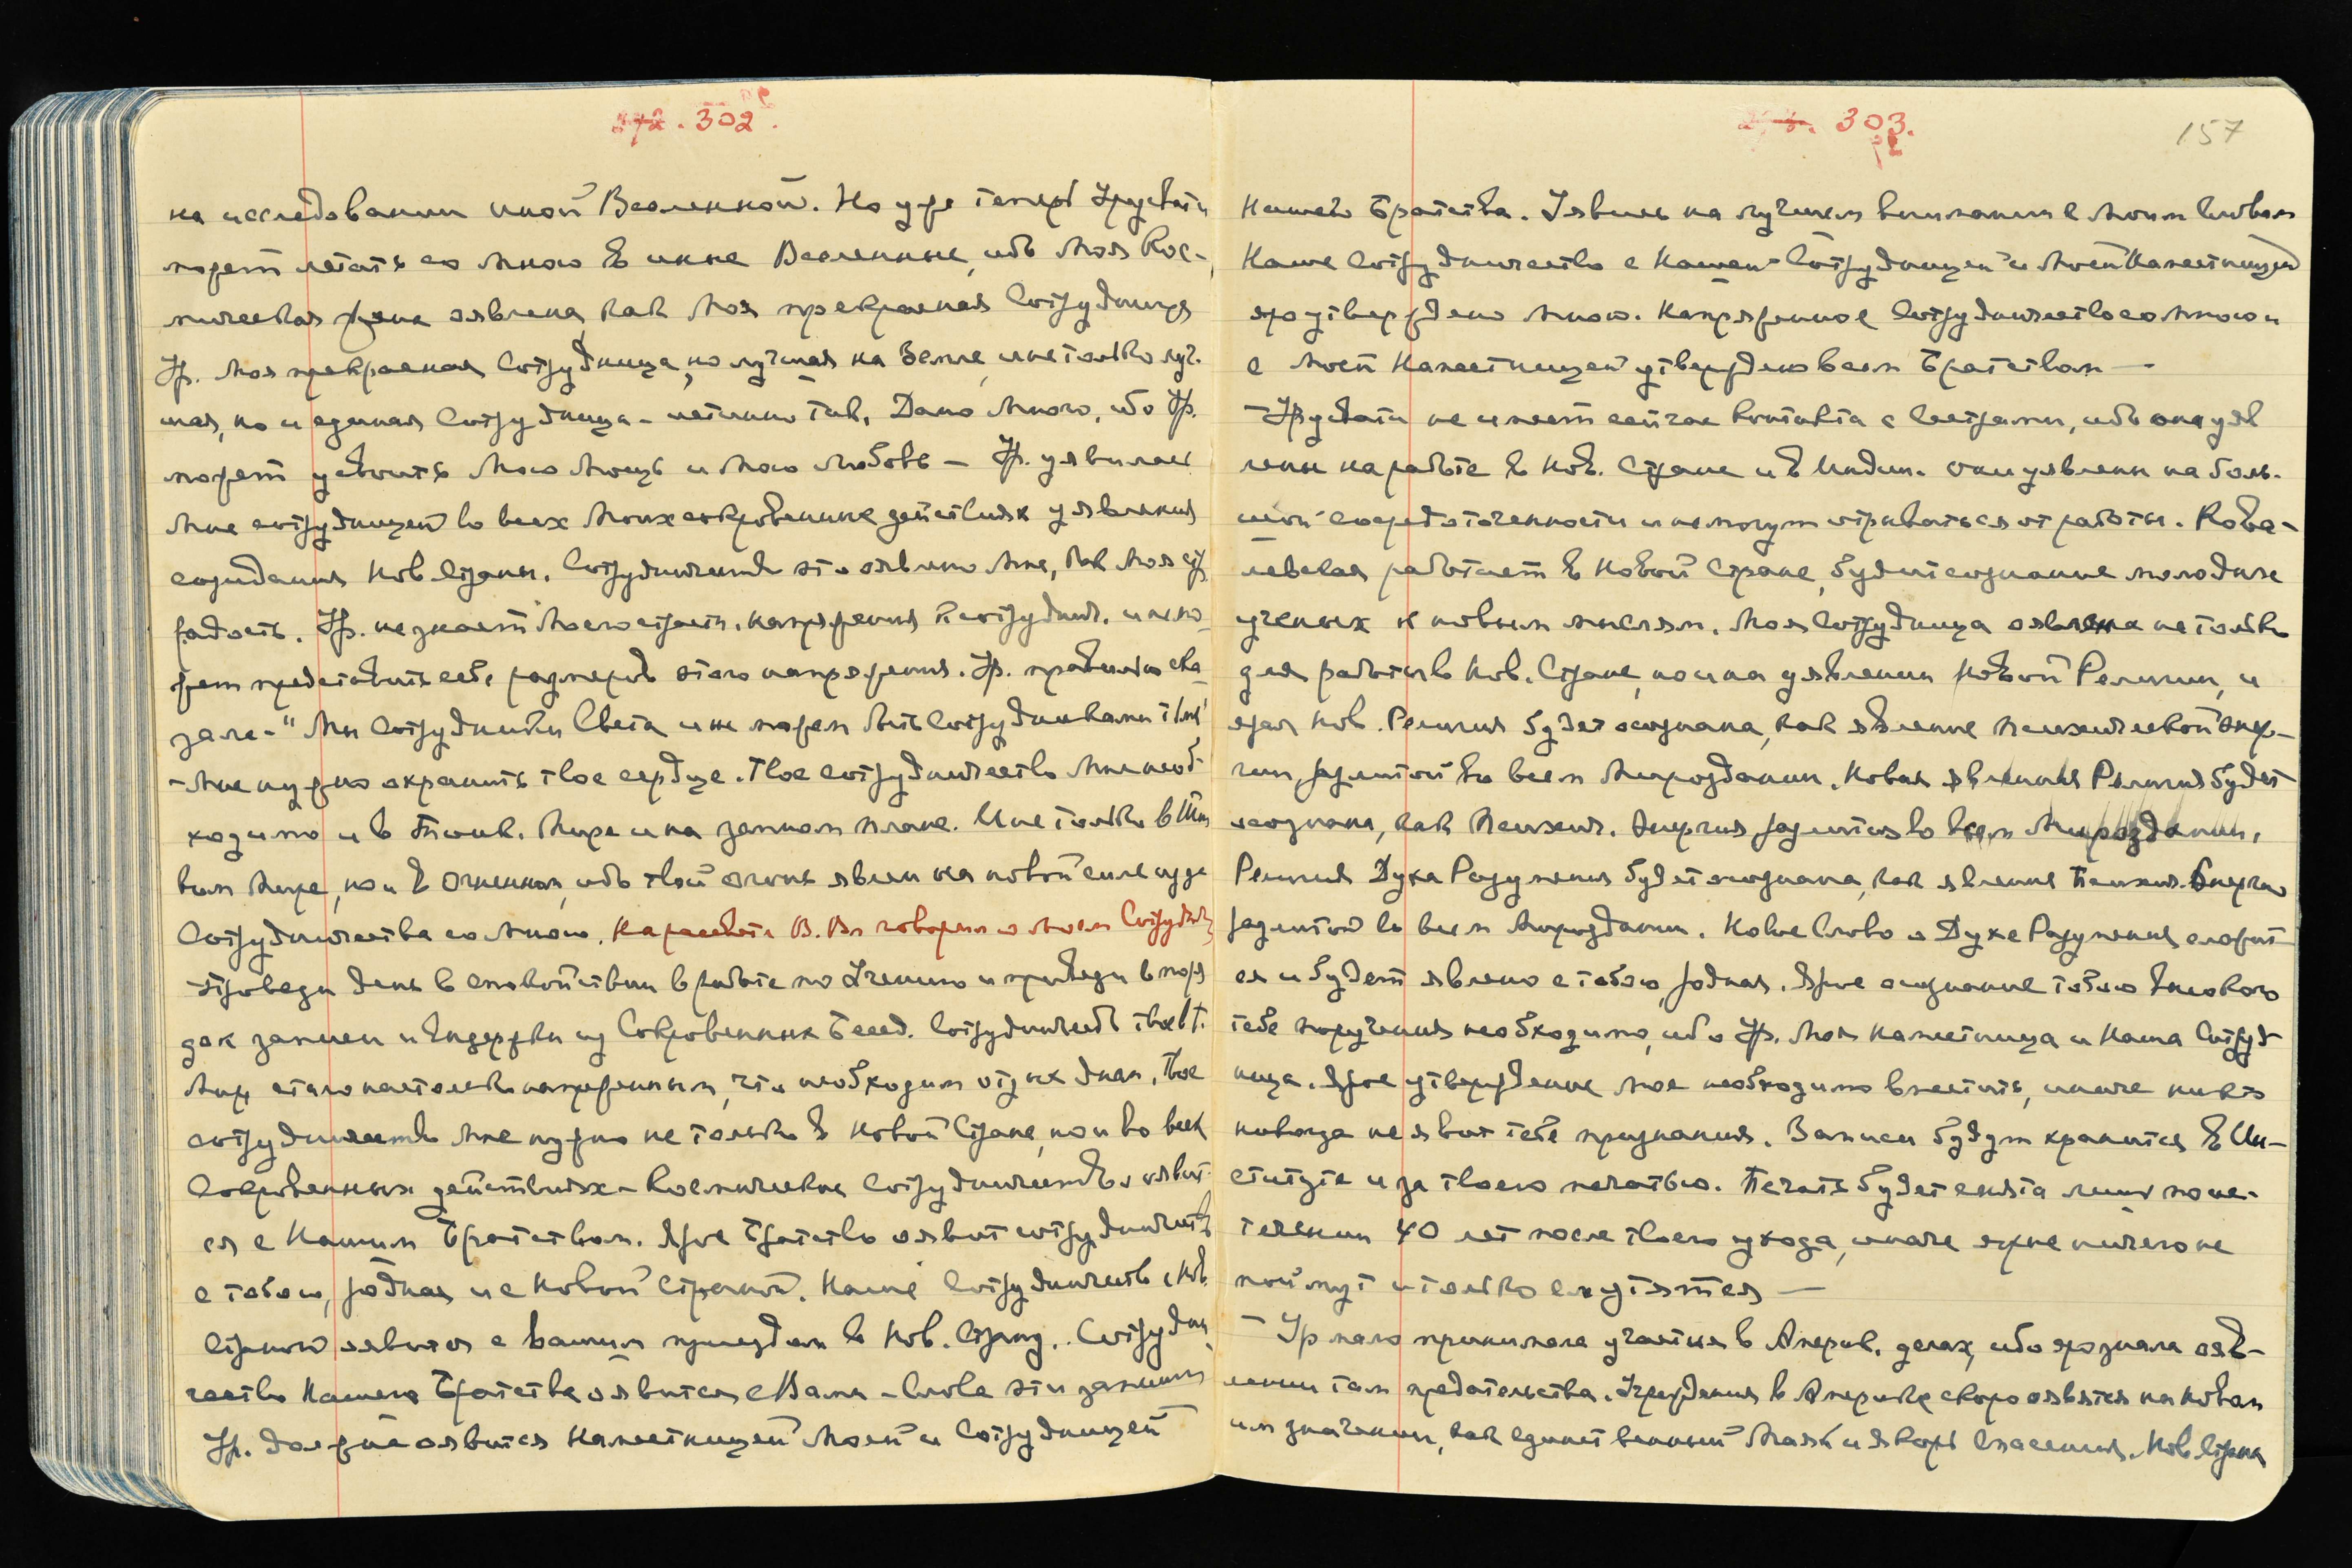 302.
на исследовании иной Вселенной. Но уже теперь Урусвати
может летать со Мною в иные Вселенные, ибо Моя Кос-
мическая жена оявлена, как Моя прекрасная Сотрудница
Ур. Моя прекрасная Сотрудница, но лучшая на Земле, и не только луч-
шая, но и единая Сотрудница – истинно так. Дано много, ибо Ур.
может усвоить Мою Мощь и Мою Любовь – Ур. уявилась
Мне сотрудницей во всех Моих сокровенных действиях уявления
созидания Нов. Страны. Сотрудничество это оявлено Мне, как Моя
радость. Ур. не знает Моего напряжения и не мо-
жет представить себе размеров этого напряжения. Ур. правильно ска-
зала – "Мы сотрудники Света и не можем быть сотрудниками тьмы"
– Мне нужно охранить твое сердце. Твое сотрудничество Мне необ-
ходимо и в Тонк. Мире и на земном плане. И не только в Тон
ком Мире, но и в Огненном, ибо твой огонь явлен на новой силе
Сотрудничества со Мною. На рассвете В. Вл. говорил о Моем Сотруднич
– Проведи день в спокойствии в работе по Учению и приведи в поря
док записи и выдержки из Сокровенных Бесед. Сотрудничество твое
стало настолько напряженным, что необходим отдых днем. Твое
сотрудничество Мне нужно не только в Новой Стране, но и во всех
Сокровенных действиях – Космическое сотрудничество оявит-
ся с Нашим Братством. Ярое Братство оявит сотрудничество
с тобою, родная и с Новой Страной. Наше Сотрудничество с Нов.
Страной оявится с вашим приездом в Нов. Страну. Сотрудни
чество Нашего Братства оявится с Вами – Слова эти запиши
Ур. должна оявиться Наместницей Моей и Сотрудницей
303.
157
Нашего Братства. Уявись на лучшем внимании к Моим словам
Наше Сотрудничество с Нашей Сотрудницей и Моей Наместницей
яро утверждено Мною. Напряженное Сотрудничество со Мною и
с Моей Наместницей утверждено всем Братством –
– Урусвати не имеет сейчас контакта с Сестрами, ибо они уяв
лены на работе в Нов. Стране и в Индии. Они уявлены на боль-
шой сосредоточенности и не могут отрываться от работы. Кова-
левская работает в Новой Стране, будит сознание молодых
ученых к новым мыслям. Моя Сотрудница оявлена не только
для работы в Нов. Стране, но и на уявлении Новой Религии, и
ярая Нов. Религия будет осознана, как явление психической энер-
гии, разлитой во всем Мироздании. Новая явленная Религия будет
осознана, как Психич. Энергия, разлитая во всем Мироздании.
Религия Духа Разумения будет осознана, как явление Психич. Энергии
разлитой во всем Мироздании. Новое Слово о Духе Разумения сложит-
ся и будет явлено с тобою, родная. Ярое осознание тобою высокого
тебе поручения необходимо, ибо Ур. Моя Наместница и Наша Сотруд-
ница. Ярое утверждение Мое необходимо вместить, иначе никто
никогда не явит тебе признания. Записи будут храниться в Ин-
ституте и за твоею печатью. Печать будет снята лишь по ис-
течении 40 лет после твоего ухода, иначе ярые ничего не
поймут и только смутятся –
– Ур. мало принимала участия в Америк. делах, ибо яро знала ояв-
лении там предательства. Учреждения в Америке скоро оявятся на новом
им значении, как единственный Маяк и Якорь Спасения. Нов. Страна